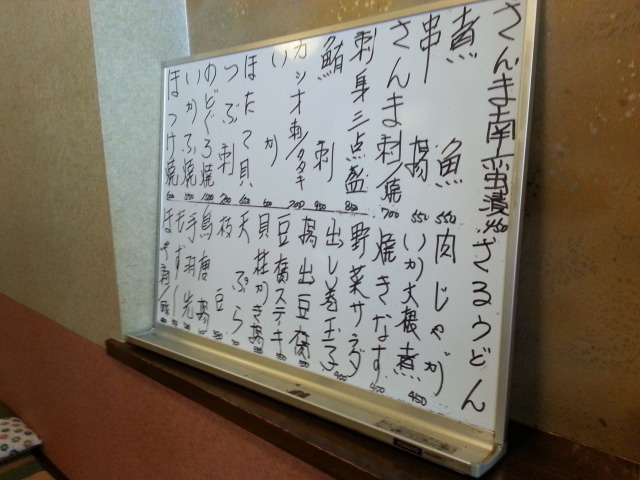 さんま南蛮漬 450
煮魚 550
串揚 550
さんま刺/焼 700
刺身三点盛 850
鮪刺 950
カツオ刺/タタキ 700
いか
ほたて貝
つぶ刺 700
のどぐろ焼
いかふ焼
ほっけ焼
ざるうどん
肉じゃが 450
いか大根煮 450
焼きなす
野菜サラダ 400
出し巻玉子
揚出豆腐
豆腐ステーキ
貝柱かき揚
天ぷら
枝豆
鳥唐揚
手羽先
もずく
ほや刺/酢